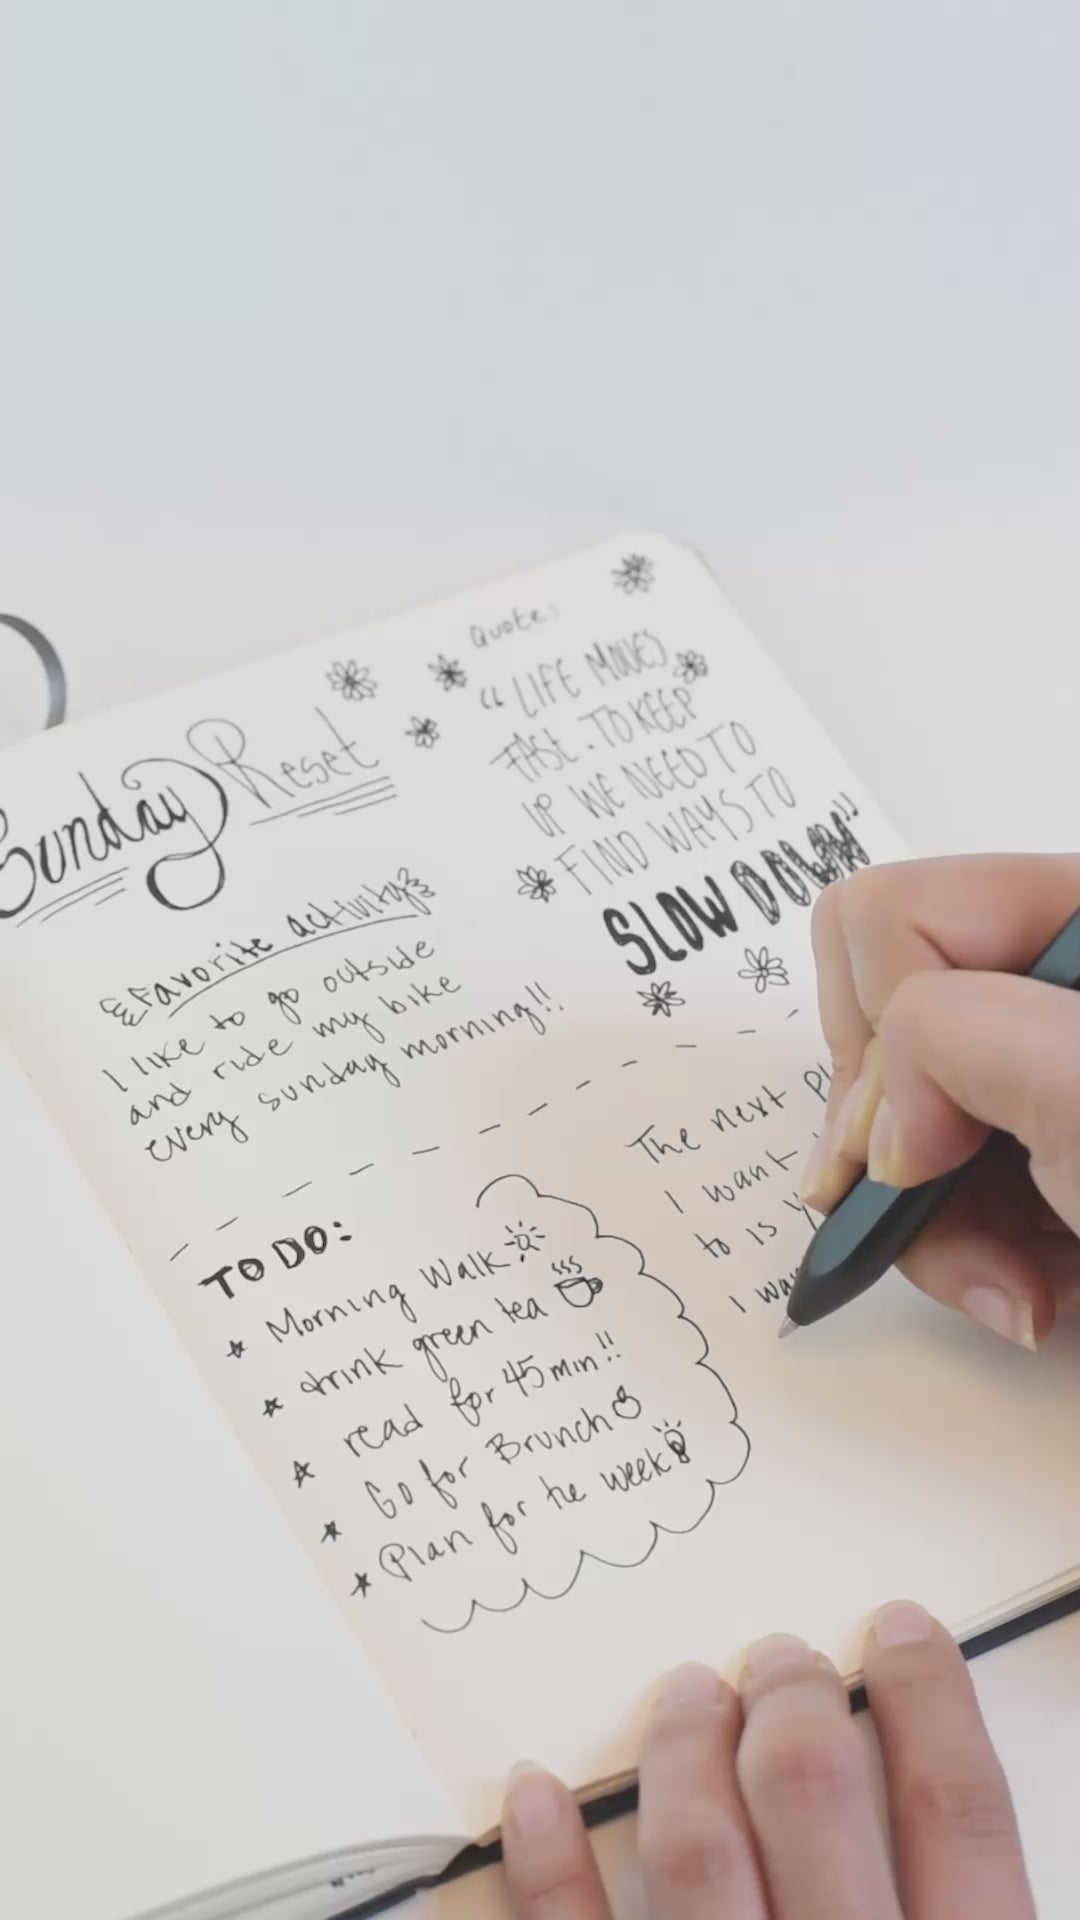 Sunday Reset
Favorite activity
I like to go outside
and ride my bike
every sunday morning!!
Quote:
"LIFE MOVES
FAST. TO KEEP
UP WE NEED TO
FIND WAYS TO
SLOW DOWN"
TO DO:
Morning Walk
drink green tea
read for 45 min!!
Go for Brunch
Plan for the week
The next
I want
to is
I